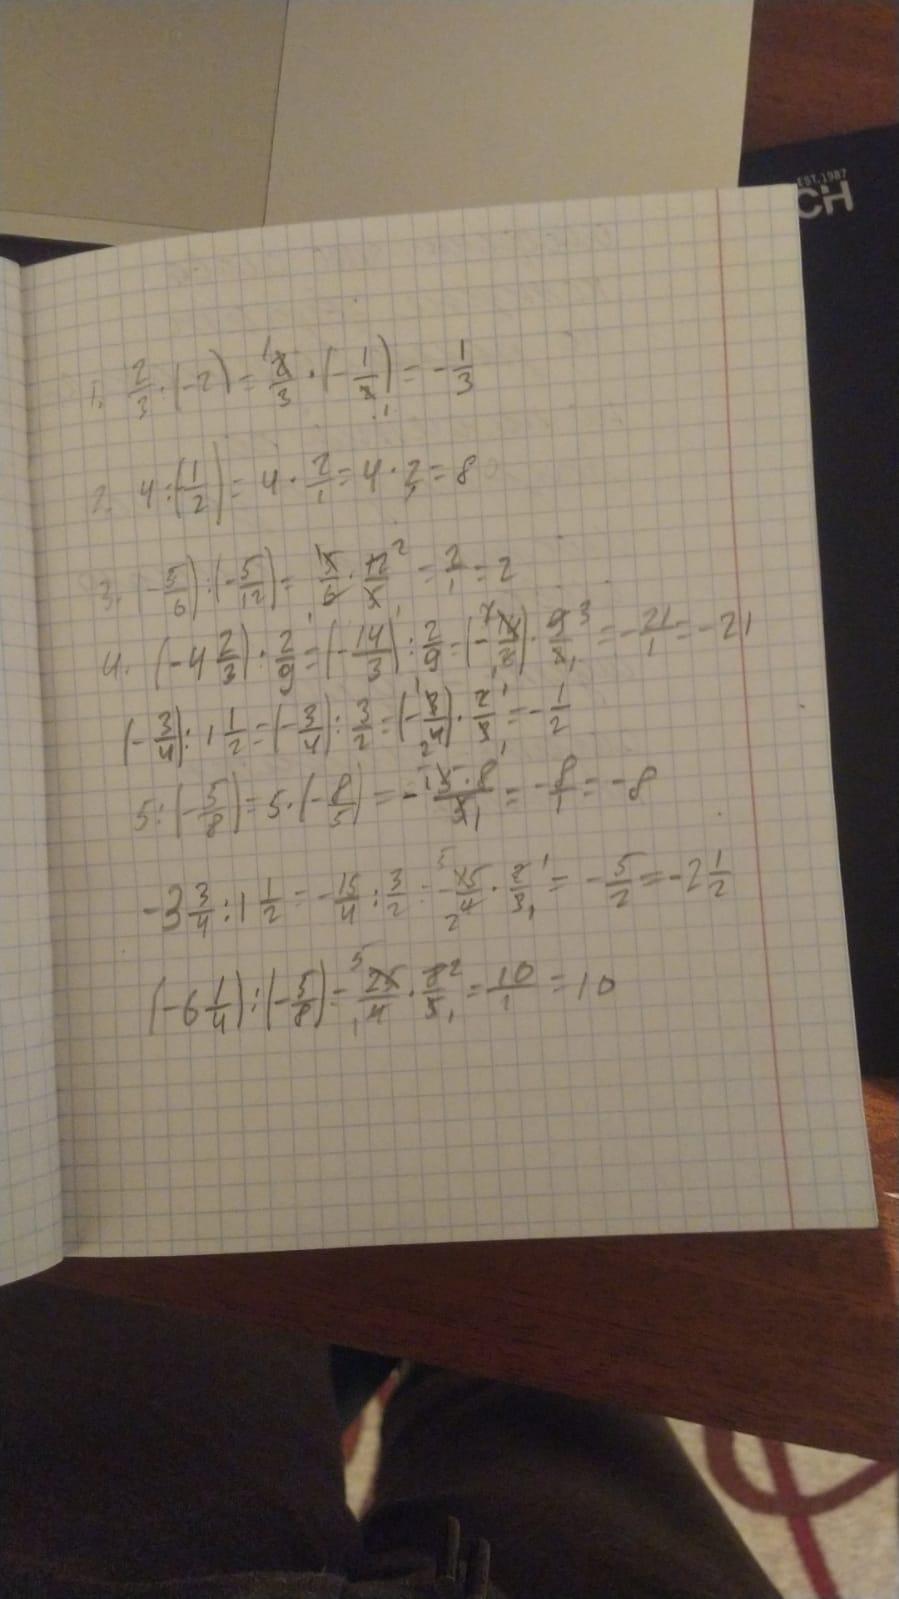 EST.1987
CH
1. 2/3 · (-2) = 2/3 · (-1/2) = -1/3
2. 4 : (-1/2) = 4 · 2/1 = 4 · 2 = 8
3. (-5/6) : (-5/12) = 5/6 · 12/5 = 2/1 = 2
4. (-4 2/3) : 2/9 = (-14/3) : 2/9 = (-14/3) · 9/2 = -21/1 = -21
(-3/4) : 1 1/2 = (-3/4) : 3/2 = (-3/4) · 2/3 = -1/2
5 : (-5/8) = 5 · (-8/5) = -5·8/5 = -8/1 = -8
-3 3/4 : 1 1/2 = -15/4 : 3/2 = -15/4 · 2/3 = -5/2 = -2 1/2
(-6 1/4) : (-5/8) = 25/4 · 8/5 = 10/1 = 10